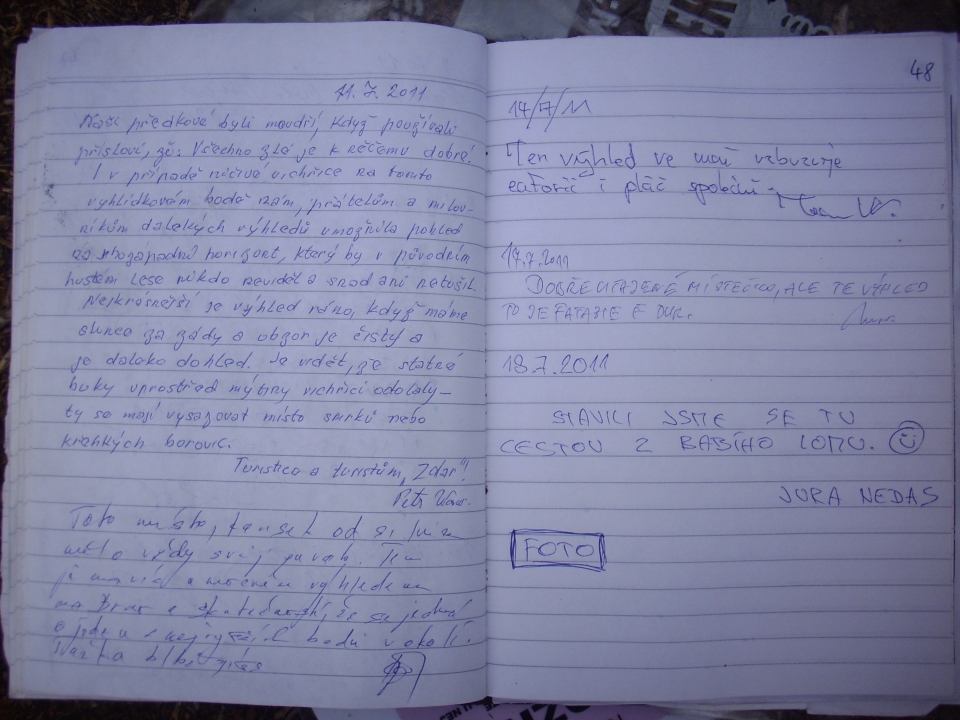 11.7.2011
Naši předkové byli moudří, když používali
přísloví, že: Všechno zlé je k něčemu dobré!
I v případě ničivé vichřice na tomto
vyhlídkovém bodě nám, přátelům a milov-
níkům dalekých výhledů umožnila pohled
na severozápadní horizont, který by v původním
hustém lese nikdo neviděl a snad ani netušil.
Nejkrásnější je výhled ráno, když máme
slunce za zády a obzor je čistý a
je daleko dohled. Je vidět, že statné
buky uprostřed mýtiny vichřici odolaly –
ty se mají vysazovat místo smrků nebo
křehkých borovic.
Turistice a turistům „Zdar"!
Petr
Toto místo,
mělo vždy svůj půvab. Ten
je výhledem
na Brno a skutečností, že se jedná
o jeden z nejvyšších bodů v okolí.
48
14/7/11
Ten výhled ve mně vzbuzuje
euforii i pláč
17.7.2011
DOBŘE UTAJENÉ MÍSTEČKO, ALE TE VÝHLED
TO JE
18.7.2011
STAVILI JSME SE TU
CESTOU Z BABÍHO LOMU. ☺
JURA NEDAS
FOTO